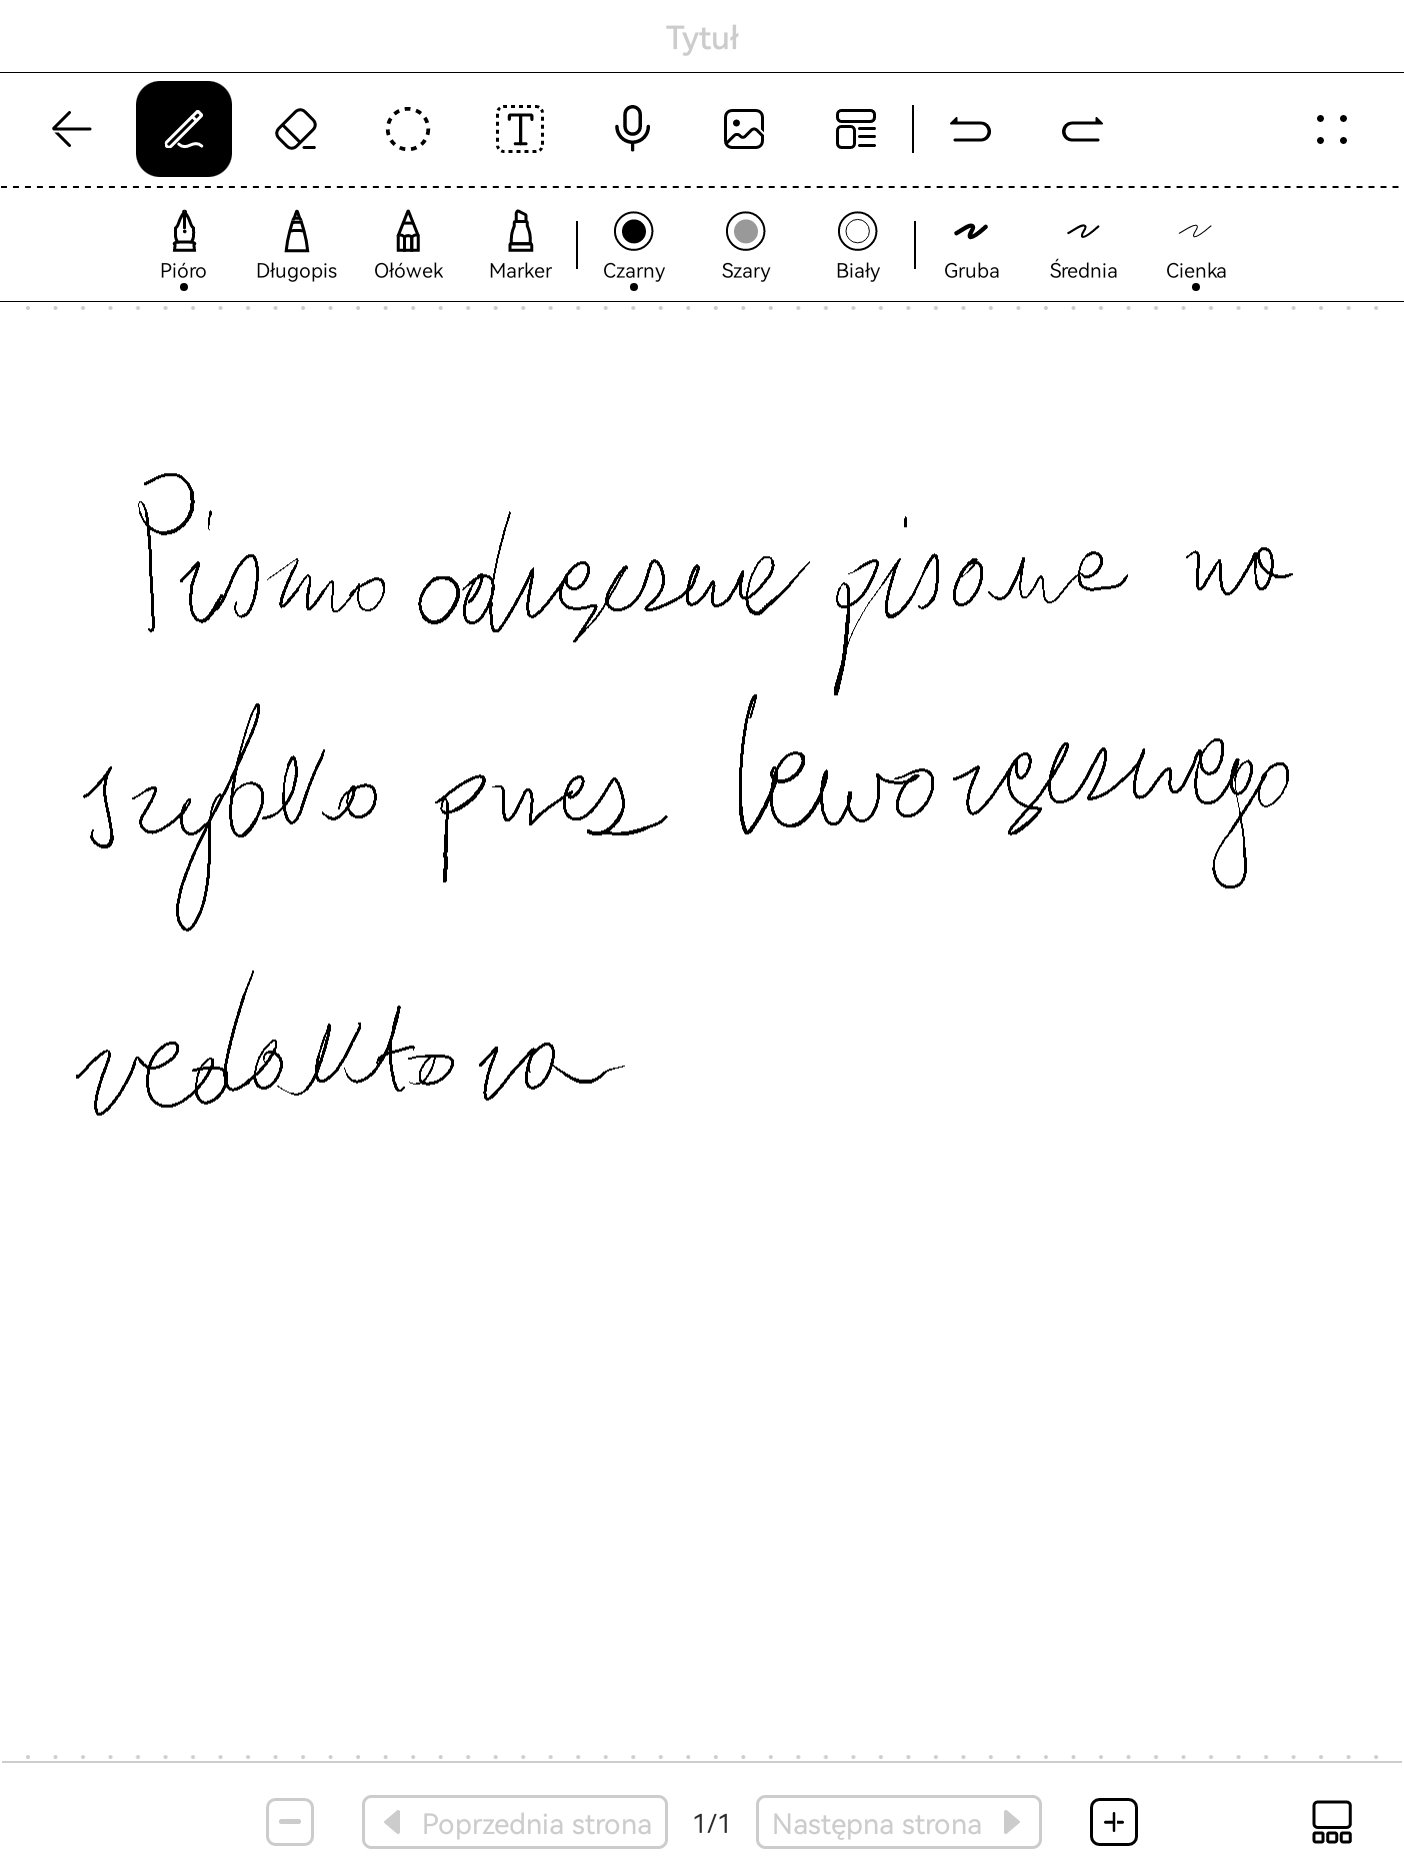 Tytuł
Pióro Długopis Ołówek Marker Czarny Szary Biały Gruba Średnia Cienka
Pismo odręczne pisane na
szybko przez leworęcznego
redaktora
Poprzednia strona 1/1 Następna strona